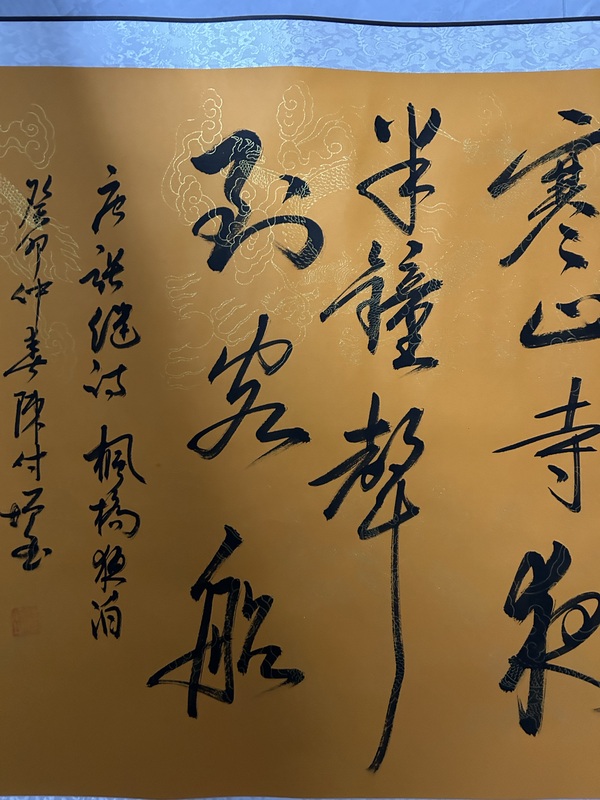 寒山寺夜
半鐘聲
到客船
唐張继詩 楓橋夜泊
癸卯仲春陳付